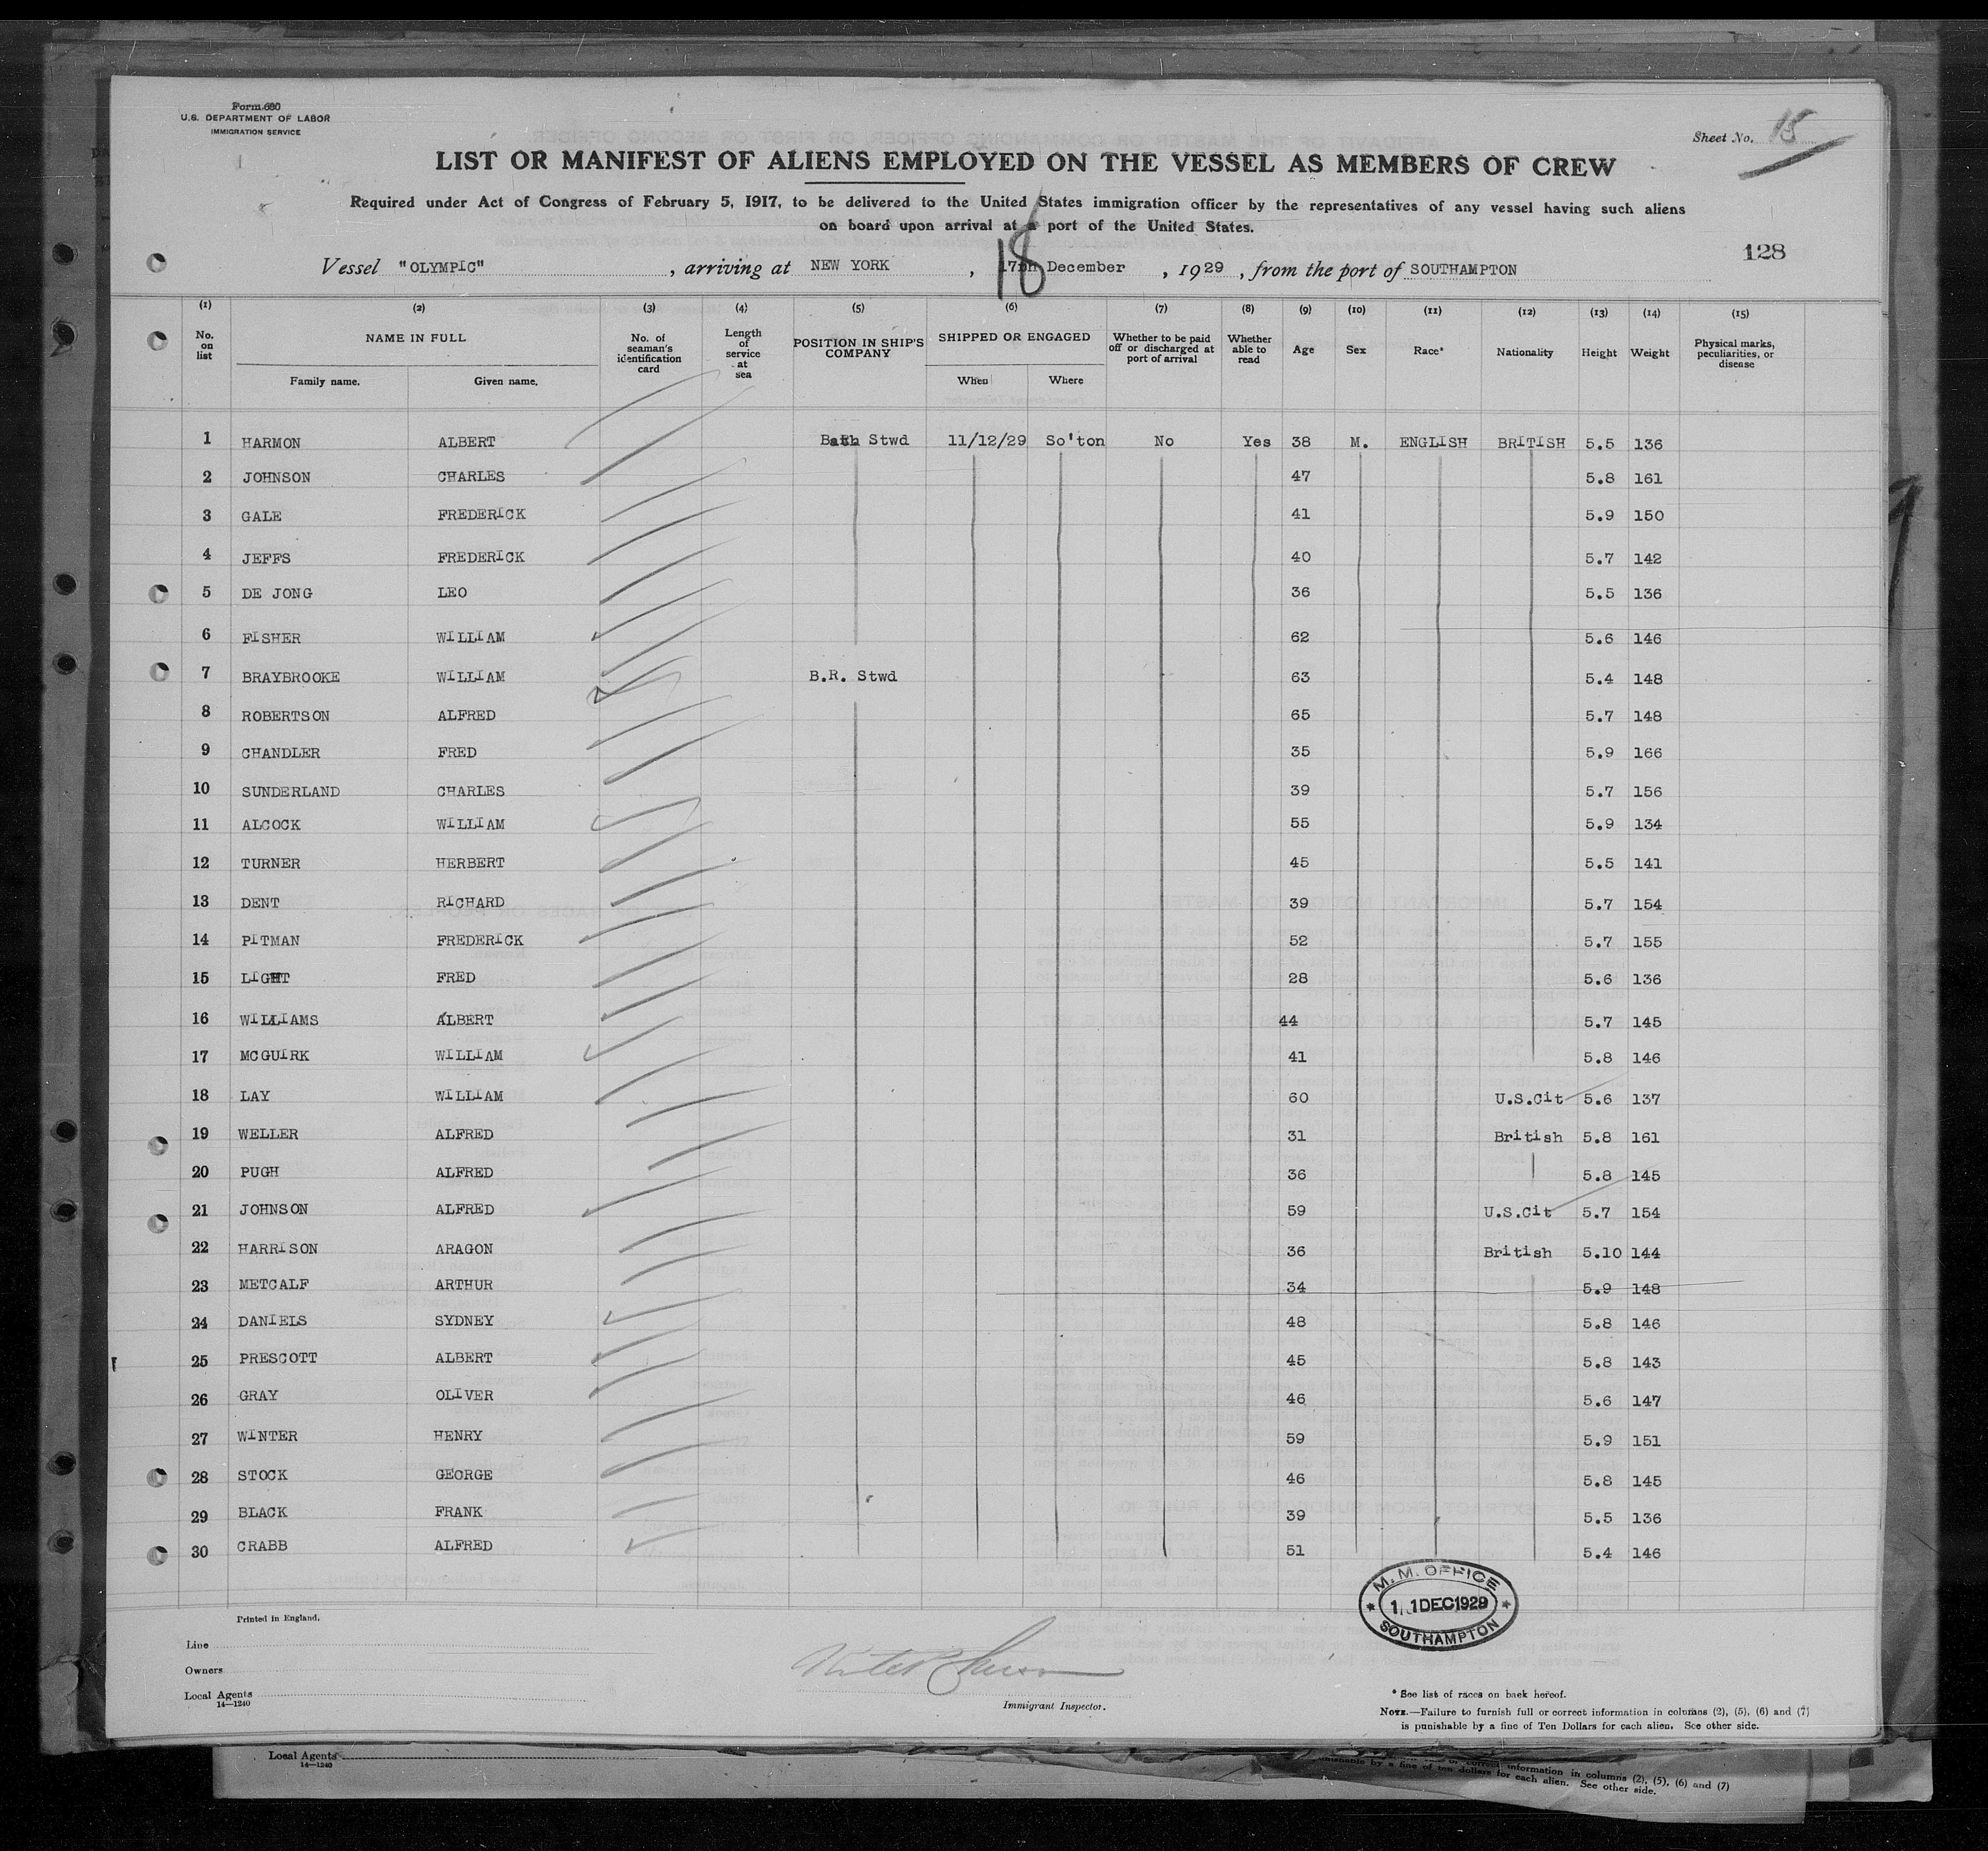 Form 680
U.S. DEPARTMENT OF LABOR
IMMIGRATION SERVICE
Sheet No. 15
LIST OR MANIFEST OF ALIENS EMPLOYED ON THE VESSEL AS MEMBERS OF CREW
Required under Act of Congress of February 5, 1917, to be delivered to the United States immigration officer by the representatives of any vessel having such aliens
on board upon arrival at a port of the United States.
128
Vessel "OLYMPIC", arriving at NEW YORK, 18 17th December, 1929, from the port of SOUTHAMPTON
(1) (2) (3) (4) (5) (6) (7) (8) (9) (10) (11) (12) (13) (14) (15)
No. on list NAME IN FULL Family name. Given name. No. of seaman's identification card Length of service at sea POSITION IN SHIP'S COMPANY SHIPPED OR ENGAGED When Where Whether to be paid off or discharged at port of arrival Whether able to read Age Sex Race* Nationality Height Weight Physical marks, peculiarities, or disease
1 HARMON ALBERT Bath Stwd 11/12/29 So'ton No Yes 38 M. ENGLISH BRITISH 5.5 136
2 JOHNSON CHARLES 47 5.8 161
3 GALE FREDERICK 41 5.9 150
4 JEFFS FREDERICK 40 5.7 142
5 DE JONG LEO 36 5.5 136
6 FISHER WILLIAM 62 5.6 146
7 BRAYBROOKE WILLIAM B.R. Stwd 63 5.4 148
8 ROBERTSON ALFRED 65 5.7 148
9 CHANDLER FRED 35 5.9 166
10 SUNDERLAND CHARLES 39 5.7 156
11 ALCOCK WILLIAM 55 5.9 134
12 TURNER HERBERT 45 5.5 141
13 DENT RICHARD 39 5.7 154
14 PITMAN FREDERICK 52 5.7 155
15 LIGHT FRED 28 5.6 136
16 WILLIAMS ALBERT 44 5.7 145
17 MCGUIRK WILLIAM 41 5.8 146
18 LAY WILLIAM 60 U.S.Cit 5.6 137
19 WELLER ALFRED 31 British 5.8 161
20 PUGH ALFRED 36 5.8 145
21 JOHNSON ALFRED 59 U.S.Cit 5.7 154
22 HARRISON ARAGON 36 British 5.10 144
23 METCALF ARTHUR 34 5.9 148
24 DANIELS SYDNEY 48 5.8 146
25 PRESCOTT ALBERT 45 5.8 143
26 GRAY OLIVER 46 5.6 147
27 WINTER HENRY 59 5.9 151
28 STOCK GEORGE 46 5.8 145
29 BLACK FRANK 39 5.5 136
30 CRABB ALFRED 51 5.4 146
M.M. OFFICE
11 DEC 1929
SOUTHAMPTON
Printed in England.
Line
Owners
Local Agents
14—1240
Immigrant Inspector.
* See list of races on back hereof.
NOTE.—Failure to furnish full or correct information in columns (2), (5), (6) and (7)
is punishable by a fine of Ten Dollars for each alien. See other side.
Local Agents
14—1240
information in columns (2), (5), (6) and (7)
by a fine of ten dollars for each alien. See other side.